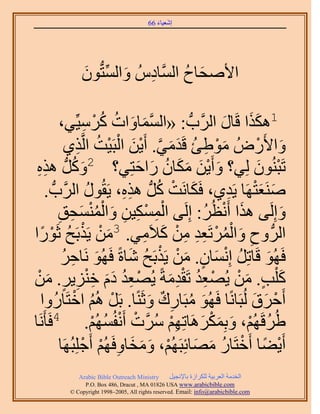 إشعياء 66
الأصحَاحُ السَّادِسُ وَالسِّتُّونَ
1هكَذَا قَالَ الرَّبُّ: «السَّمَاوَاتُ كُرْسِيِّي،
وَالأَرْضُ مَوْطِئُ قَدَمَيَّ. أَيْنَ الْبَيْتُ الَّذِي
تَبْنُونَ لِي؟ وَأَيْنَ مَكَانُ رَاحَتِي؟ 2وَكُلُّ هذِهِ
صَنَعَتْهَا يَدِي، فَكَانَتْ كُلُّ هذِهِ، يَقُولُ الرَّبُّ.
وَإِلَى هذَا أَنْظُرُ: إِلَى الْمِسْكِينِ وَالْمُنْسَحِقِ
الرُّوحِ وَالْمُرْتَعِدِ مِنْ كَلاَمِي. 3مَنْ يَذْبَحُ ثَوْرًا
فَهُوَ قَاتِلُ إِنْسَانٍ. مَنْ يَذْبَحُ شَاةً فَهُوَ نَاحِرُ
كَلْبٍ. مَنْ يُصْعِدُ تَقْدِمَةً يُصْعِدُ دَمَ خِنْزِيرٍ. مَنْ
أَحْرَقَ لُبَانًا فَهُوَ مُبَارِكٌ وَثَنًا. بَلْ هُمُ اخْتَارُوا
طُرُقَهُمْ، وَبِمَكْرَهَاتِهِمْ سُرَّتْ أَنْفُسُهُمْ. 4فَأَنَا
أَيْضًا أَخْتَارُ مَصَائِبَهُمْ، وَمَخَاوِفَهُمْ أَجْلِبُهَا
Arabic Bible Outreach Ministry الخدمة العربية للكرازة بالإنجيل
P.O. Box 486, Dracut , MA 01826 USA www.arabicbible.com
© Copyright 1998-2005, All rights reserved. Email: info@arabicbible.com